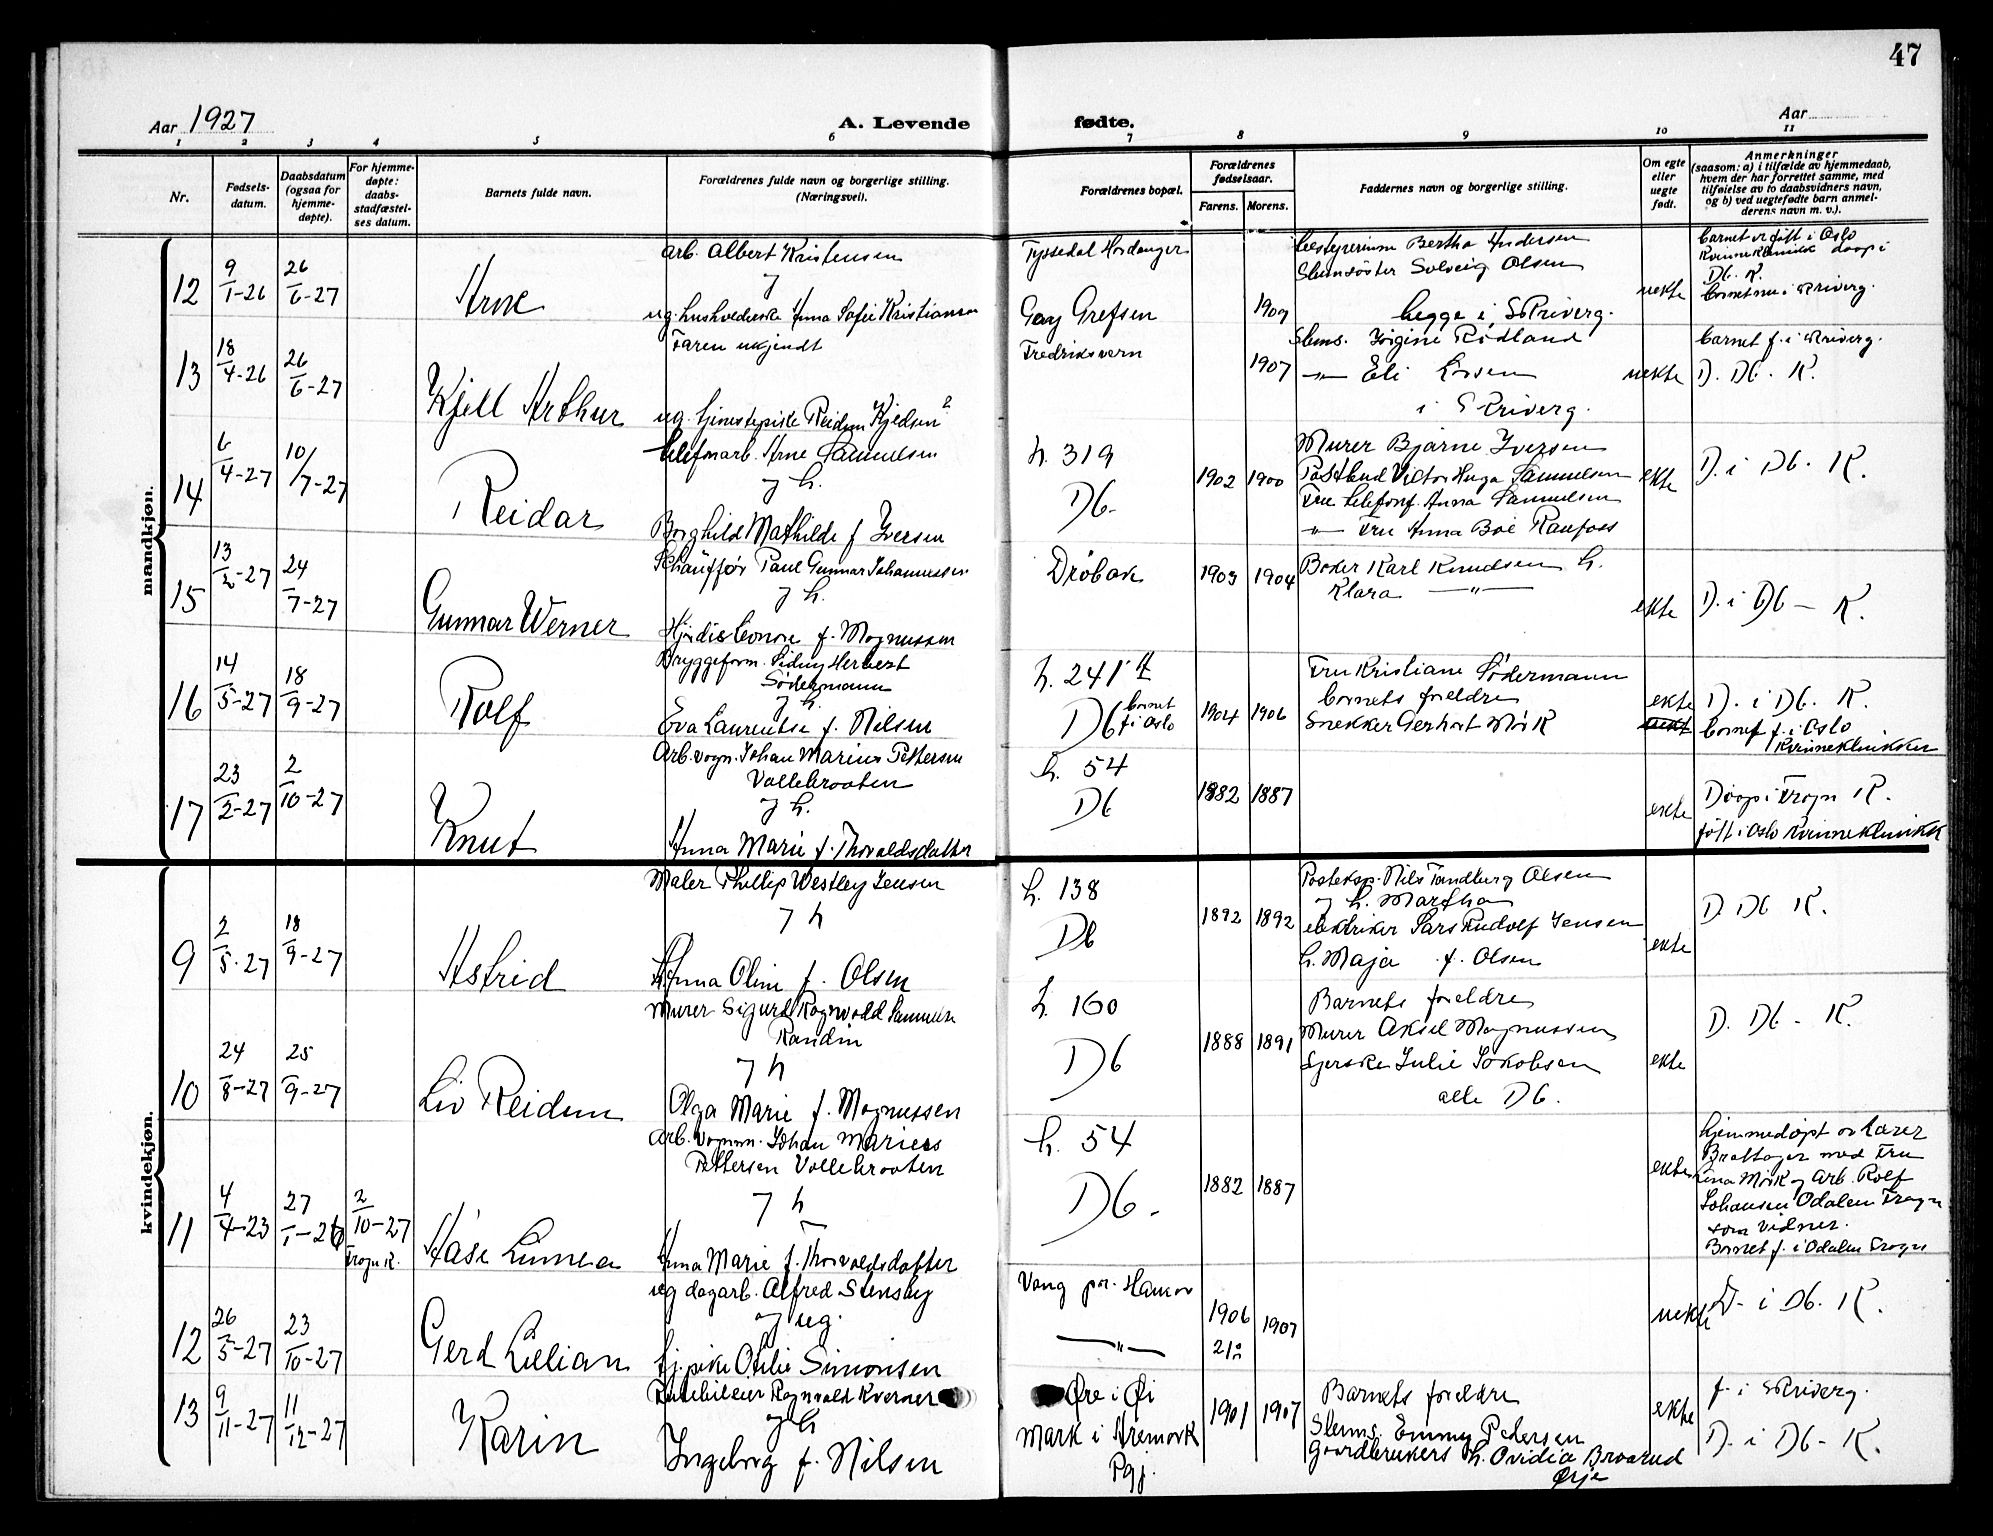 47
Aar 1927
A. Levende
fødte.
Aar
1 2 3 4 5 6 7 8 9 10 11
Nr.
Fødsels-
datum.
Daabsdatum
(ogsaa for
hjemme-
døpte).
For hjemme-
døpte:
daabs-
stadfæstel-
ses datum.
Barnets fulde navn.
Forældrenes fulde navn og borgerlige stilling.
(Næringsvei).
Forældrenes bopæl.
Forældrenes
fødselsaar.
Farens. Morens.
Faddernes navn og borgerlige stilling.
Om egte
eller
uegte
født.
Anmerkninger
(saasom: a) i tilfælde av hjemmedaab,
hvem der har forrettet samme, med
tilføielse av to daabsvidners navn,
og b) ved uegtefødte barn anmel-
derens navn m. v.).
mandkjøn.
12
9/1-26
26/6-27
Arne
arb. Albert Kristensen
og
ug. husholderske Anna Sofie Kristiansen
Tyssedal Hardanger
Grefsen
1909
Bestyrerinne Bertha Andersen
Slumsöster Solveig Olsen
begge i SKriverg.
uekte
barnet er föft i Oslo
Kvinneklinikk daap i
DB. K.
barnet nu i Skriverg.
13
18/4-26
26/6-27
Kjell Arthur
Faren ukjendt
ug. tjenestepike Reidun Kjeldsen ?
Fredriksvern
1907
Slums. Jörgine Rödland
-"- Eli Larsen
i SKriverg.
uekte
barnet f. i Skriverg.
D. DB. K.
14
6/4-27
10/7-27
Reidar
telefonarb. Arne Samuelsen
og h.
Borghild Mathilde f Iversen
h. 319
DB.
1902 1900
Murer Bjarne Iversen
Postbud Victor Hugo Samuelsen
Fru telefonf. Anna Samuelsen
-"- Fru Anna Boe Raufoss
ekte
D. i DB. K.
15
13/2-27
24/7-27
Gunnar Werner
Schäufför Paul Gunnar Johannessen
og h.
Hjördis Leonore f. Magnussen
Dröbak
1903 1904
Baker Karl Knudsen h.
Klara -"-
ekte
D. i DB - K.
16
14/5-27
18/9-27
Rolf
Bryggeform. Sidney Herbert
Södermann
og h.
Eva Laurentse f. Nilsen
h. 241
DB barnet
f. i Oslo
1904 1906
Fru Kristiane Södermann
barnets foreldre
Snekker Gerhart Mörk
ekte
D. i DB. K.
barnet f. i Oslo
Kvinneklinikken
17
23/2-27
2/10-27
Knut
Arb. vogn. Johan Marius Pettersen
Vollebraaten
og h.
Anna Marie f. Thorvaldsdatter
h. 54
DB
1882 1887
ekte
Daap i Frogn K.
föft i Oslo Kvinneklinikk
kvindekjøn.
9
2/5-27
18/9-27
Astrid
Maler Phillip Westley Jensen
og h
Anna Oline f. Olsen
h. 138
DB
1892 1892
Posteksp. Nils Tandberg Olsen
og h. Martha
elektriker Lars Rudolf Jensen
h. Maja f. Olsen
ekte
D. DB K.
10
24/8-27
25/9-27
Liv Reidun
Murer Sigurd Ragnvald Samuelsen
Randin
og h
Olga Marie f. Magnussen
h. 160
DB
1888 1891
Barnets foreldre
Murer Aksel Magnussen
Syerske Julie Jakobsen
alle DB.
ekte
D. DB - K.
11
4/4-23
27/1-26
2/10-27
Frogn K.
Aase Linnea
Arb. vognm. Johan Marius
Pettersen Vollebraaten
og h
Anna Marie f. Thorvaldsdatter
h. 54
DB.
1882 1887
ekte
hjemmedöpt av Lærer
Brattager med Fru
Lina Mörk og Arb. Rolf
Johansen Odalen Frogn
som vidner.
Barnet f. i Odalen Frogn
12
26/5-27
23/10-27
Gerd Lillian
ug dagarb. Alfred Stensby
og ug.
tj.pike Otilie Simonsen
Vang pr. Hamar
-"-
1906 1907
uekte
D. i DB. K.
13
9/11-27
11/12-27
Karin
Rutebileier Ragnvald Kverner
og h
Ingeborg f. Nilsen
Öre i Öi
mark i Aremark
Pgj.
1901 1907
Barnets foreldre
Slums. Emmy Pedersen
Gaardbrukers h. Ovidia Braarud
Örje
ekte
f. i SKriverg.
D. i DB - K.